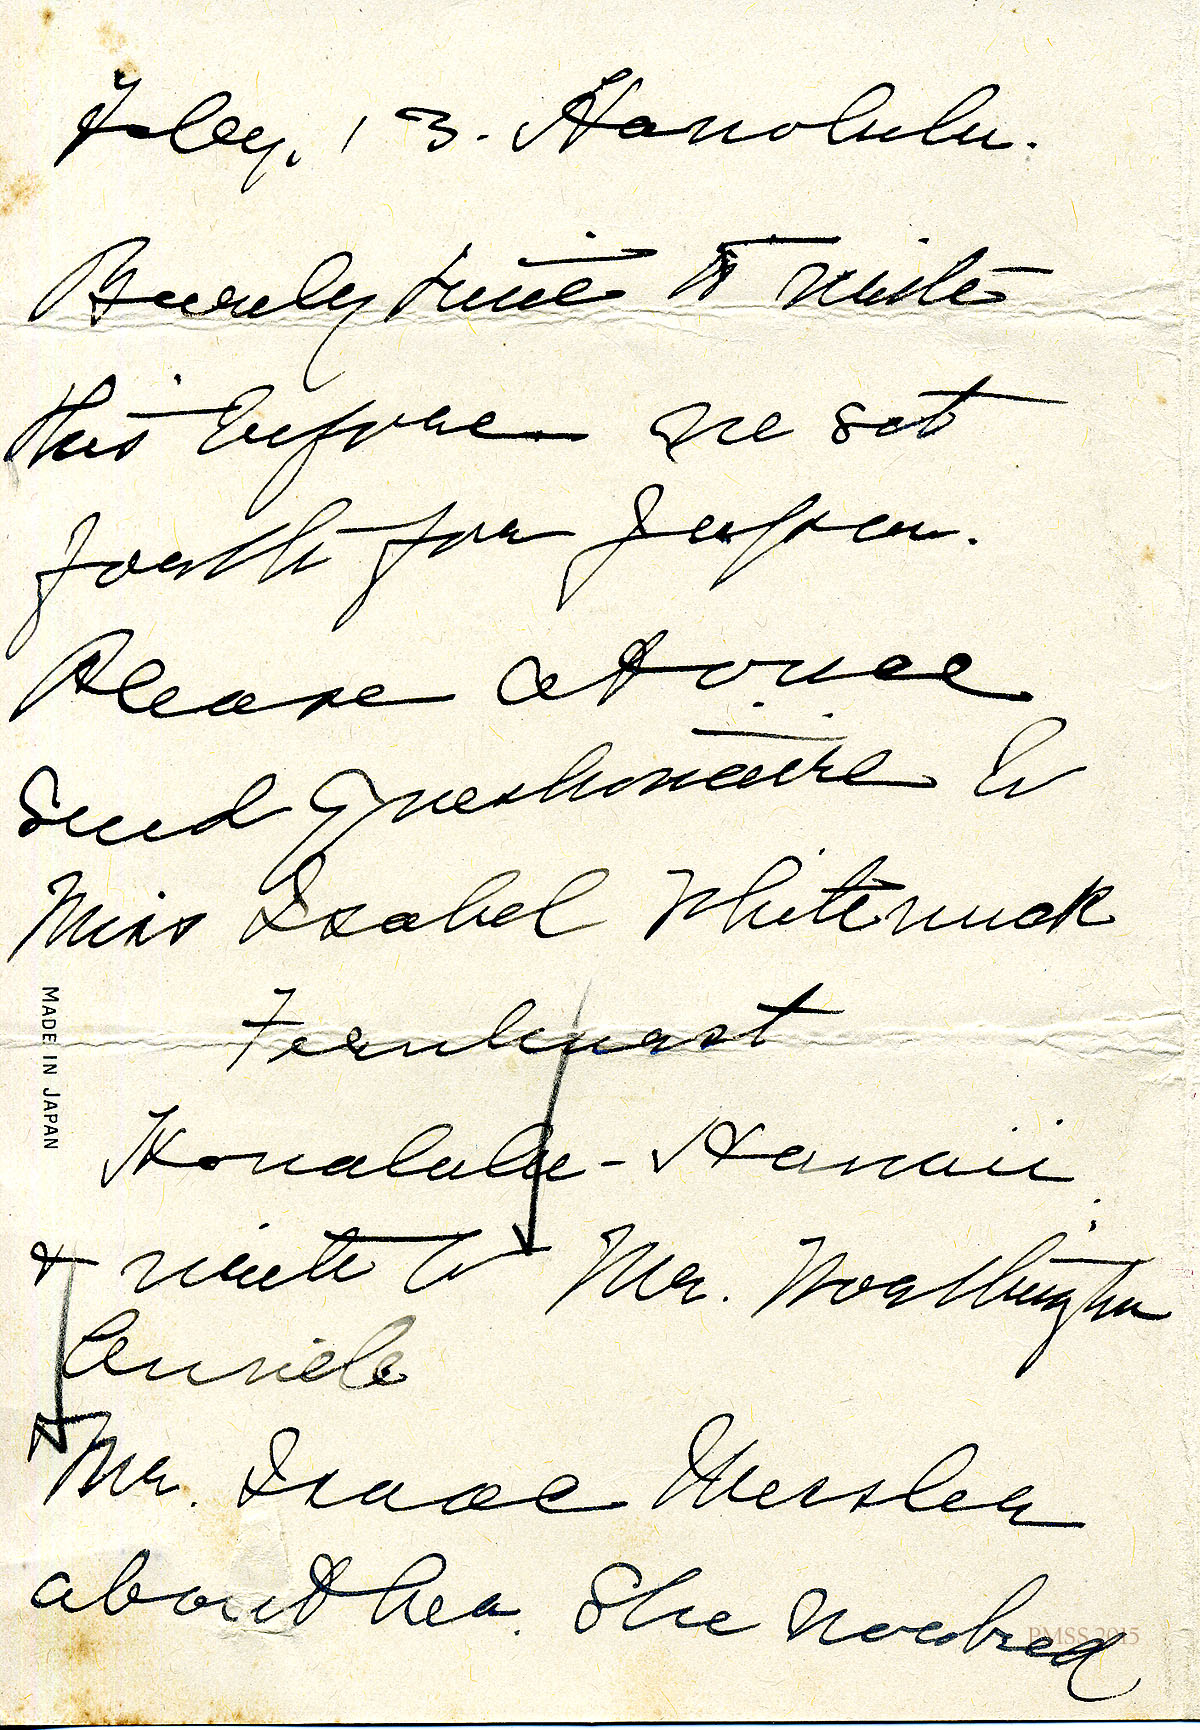 Feby. 13. Honolulu.
Barely time to write
this before we set
forth for Japan.
Please at once
send Questionaire to
Miss Isabel Whitemack
Fernhurst
Honolulu - Hawaii
& write to Mr. Worthington

Mr. Isaac Messler
about her. She worked
MADE IN JAPAN
PMSS 2015